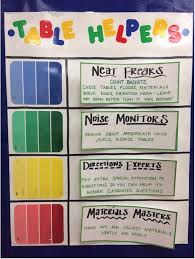 TABLE HELPERS
Neat Freaks
COUNT BASKETS
CHECK TABLES, FLOORS, MATERIALS
SHELF, SINKS, DRYING AREA / LEAVE
ART ROOM BETTER THAN IT WAS!
Noise Monitors
REMIND ABOUT APPROPRIATE VOICE
LEVELS, DISMISS TABLES
Directions Experts
PAY EXTRA SPECIAL ATTENTION TO
DIRECTIONS SO YOU CAN HELP TO
ANSWER CLASSMATES QUESTIONS
Materials Masters
HAND OUT AND COLLECT MATERIALS
SAFELY AND NICELY